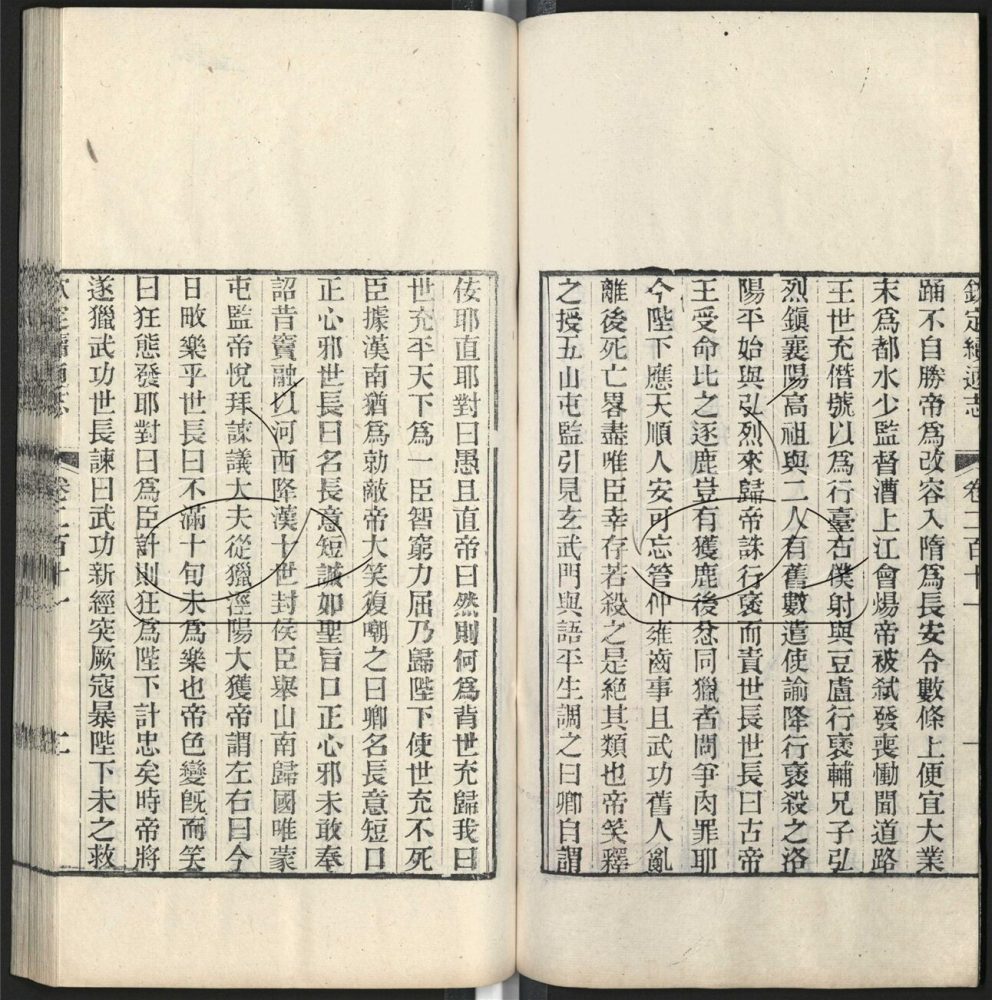 欽定續通志 卷二百十一 一
踊不自勝帝爲改容入隋爲長安令數條上便宜大業
末爲都水少監督漕上江會煬帝被弑發喪慟聞道路
王世充僭號以爲行臺右僕射與豆盧行褒輔兄子弘
烈鎮襄陽高祖與二人有舊數遣使諭降行褒殺之洛
陽平始與弘烈來歸帝誅行褒而責世長世長曰古帝
王受命比之逐鹿豈有獲鹿後忿同獵者問爭肉罪耶
今陛下應天順人安可忘管仲雍齒事且武功舊人亂
離後死亡畧盡唯臣幸存若殺之是絕其類也帝笑釋
之授五山屯監引見玄武門與語平生調之曰卿自謂
佞耶直耶對曰愚且直帝曰然則何爲背世充歸我曰
世充平天下爲一臣智窮力屈乃歸陛下使世充不死
臣據漢南猶爲勍敵帝大笑復嘲之曰卿名長意短口
正心邪世長曰名長意短誠如聖旨口正心邪未敢奉
詔昔竇融以河西降漢十世封侯臣舉山南歸國唯蒙
屯監帝悅拜諫議大夫從獵涇陽大獲帝謂左右曰今
日畋樂乎世長曰不滿十旬未爲樂也帝色變旣而笑
曰狂態發耶對曰爲臣計則狂爲陛下計忠矣時帝將
遂獵武功世長諫曰武功新經突厥寇暴陛下未之救
欽定續通志 卷二百十一 二